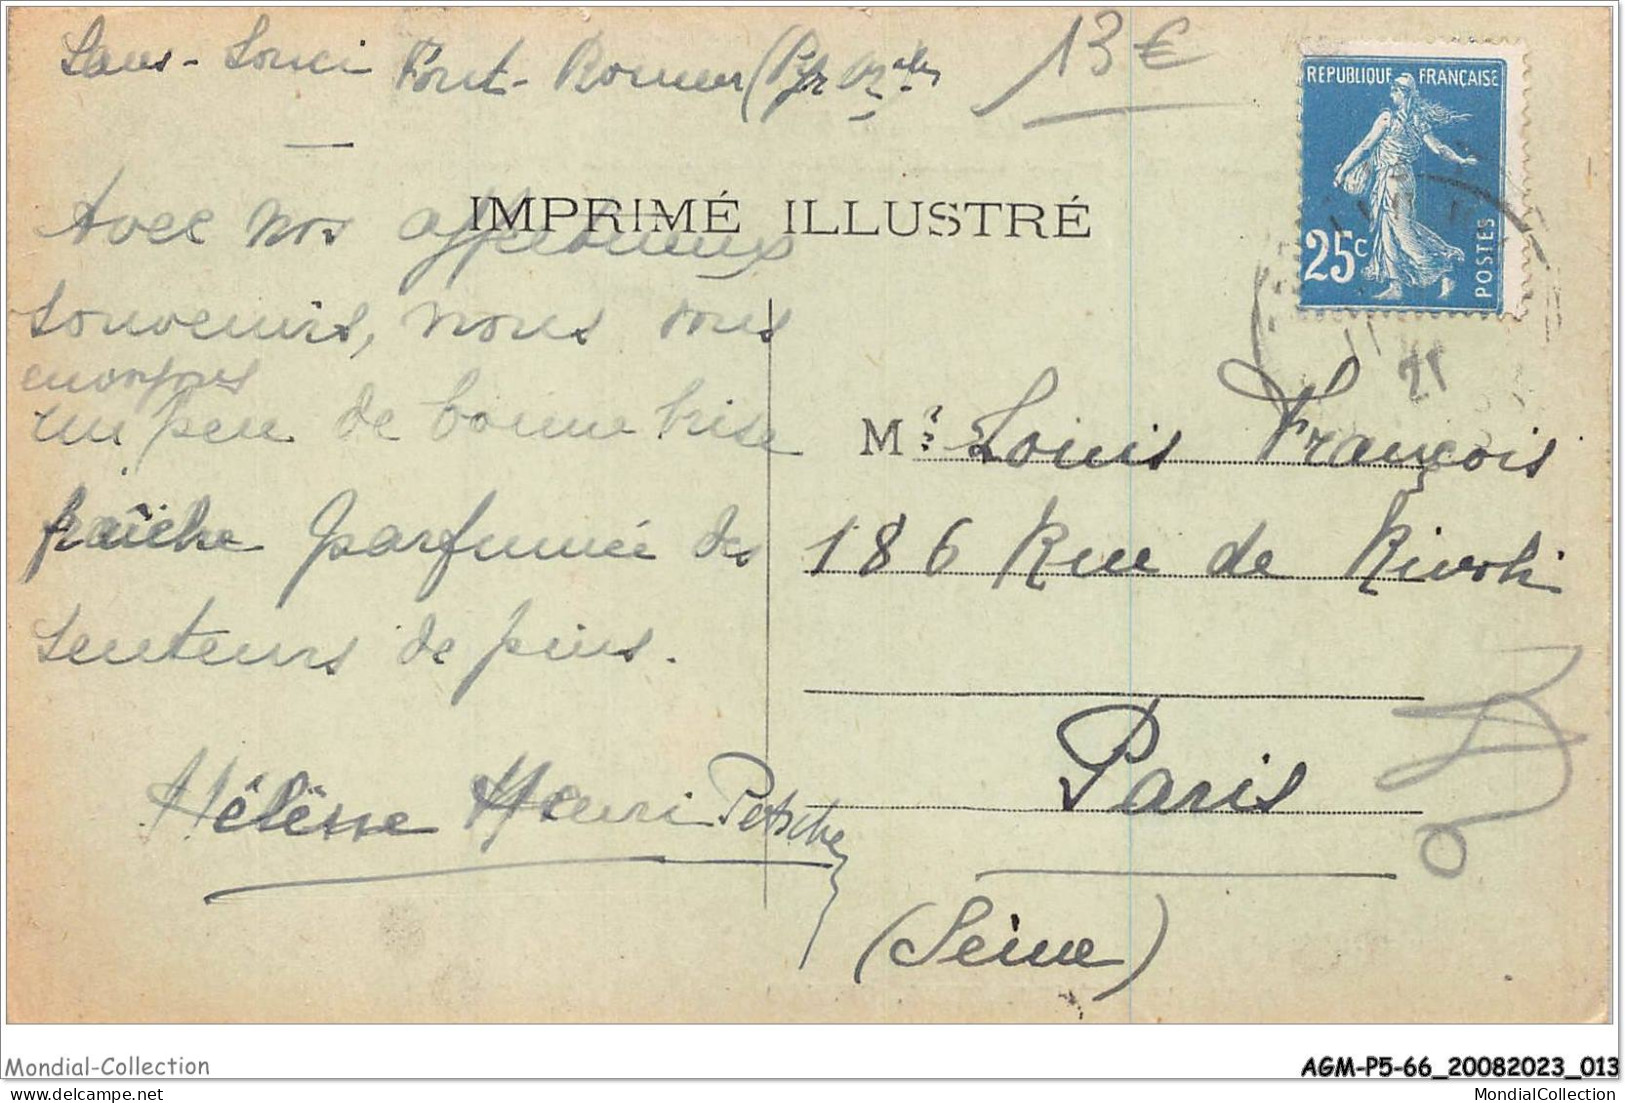 Sans-Souci Font-Romeu (Pyr. Or.ales
13 €
REPUBLIQUE FRANÇAISE
25c
POSTES
IMPRIMÉ ILLUSTRÉ
Avec nos affectueux
souvenirs, nous vous
envoyons
un peu de bonne brise
fraîche parfumée des
senteurs de pins.
Hélène Henri Petsche
Mr Louis François
186 Rue de Rivoli
Paris
(Seine)
Mondial-Collection
AGM-P5-66_20082023_013
MondialCollection